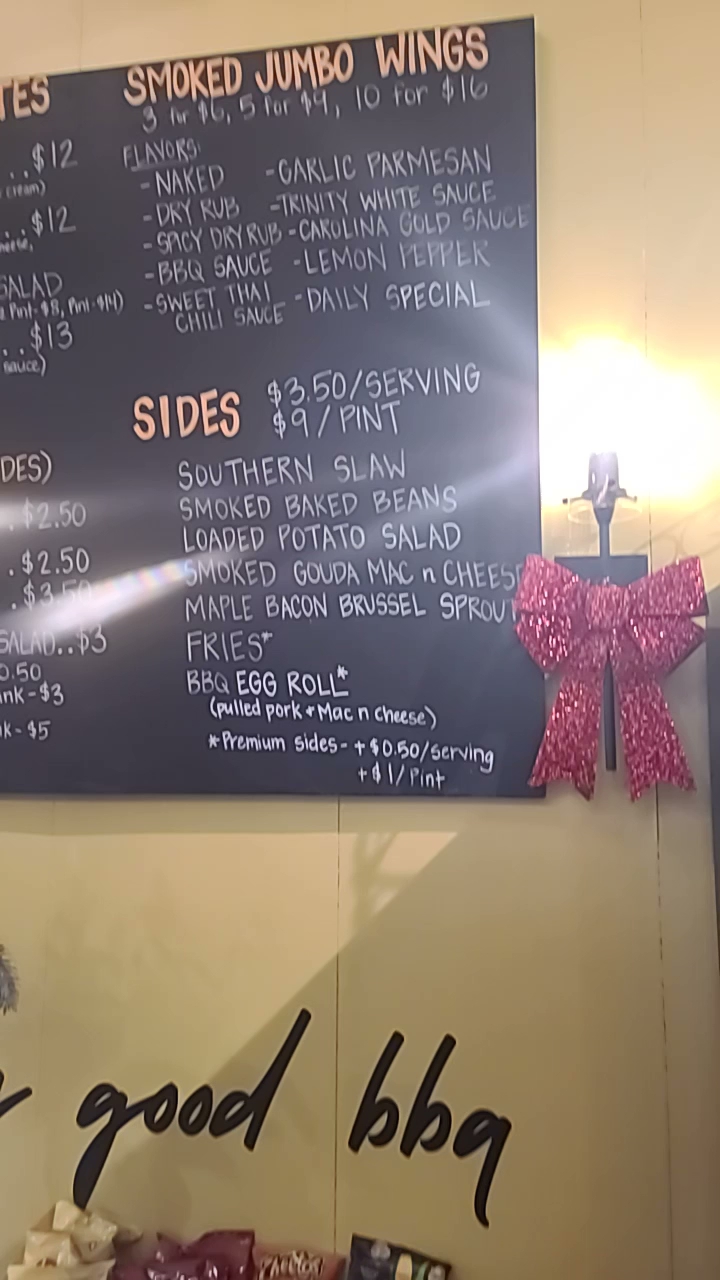 TES
...$12
cream)
...$12
SALAD
Pint-$8, Pint-$14)
..$13
sauce)
DES)
.$2.50
.$2.50
.$3.50
SALAD..$3
0.50
nk-$3
k-$5
SMOKED JUMBO WINGS
3 for $6, 5 for $9, 10 for $16
FLAVORS:
-NAKED -GARLIC PARMESAN
-DRY RUB -TRINITY WHITE SAUCE
-SPICY DRY RUB -CAROLINA GOLD SAUCE
-BBQ SAUCE -LEMON PEPPER
-SWEET THAI -DAILY SPECIAL
CHILI SAUCE
SIDES $3.50/SERVING
$9/PINT
SOUTHERN SLAW
SMOKED BAKED BEANS
LOADED POTATO SALAD
SMOKED GOUDA MAC n CHEESE
MAPLE BACON BRUSSEL SPROUT
FRIES*
BBQ EGG ROLL*
(pulled pork + Mac n cheese)
*Premium sides- +$0.50/serving
+$1/Pint
good bbq